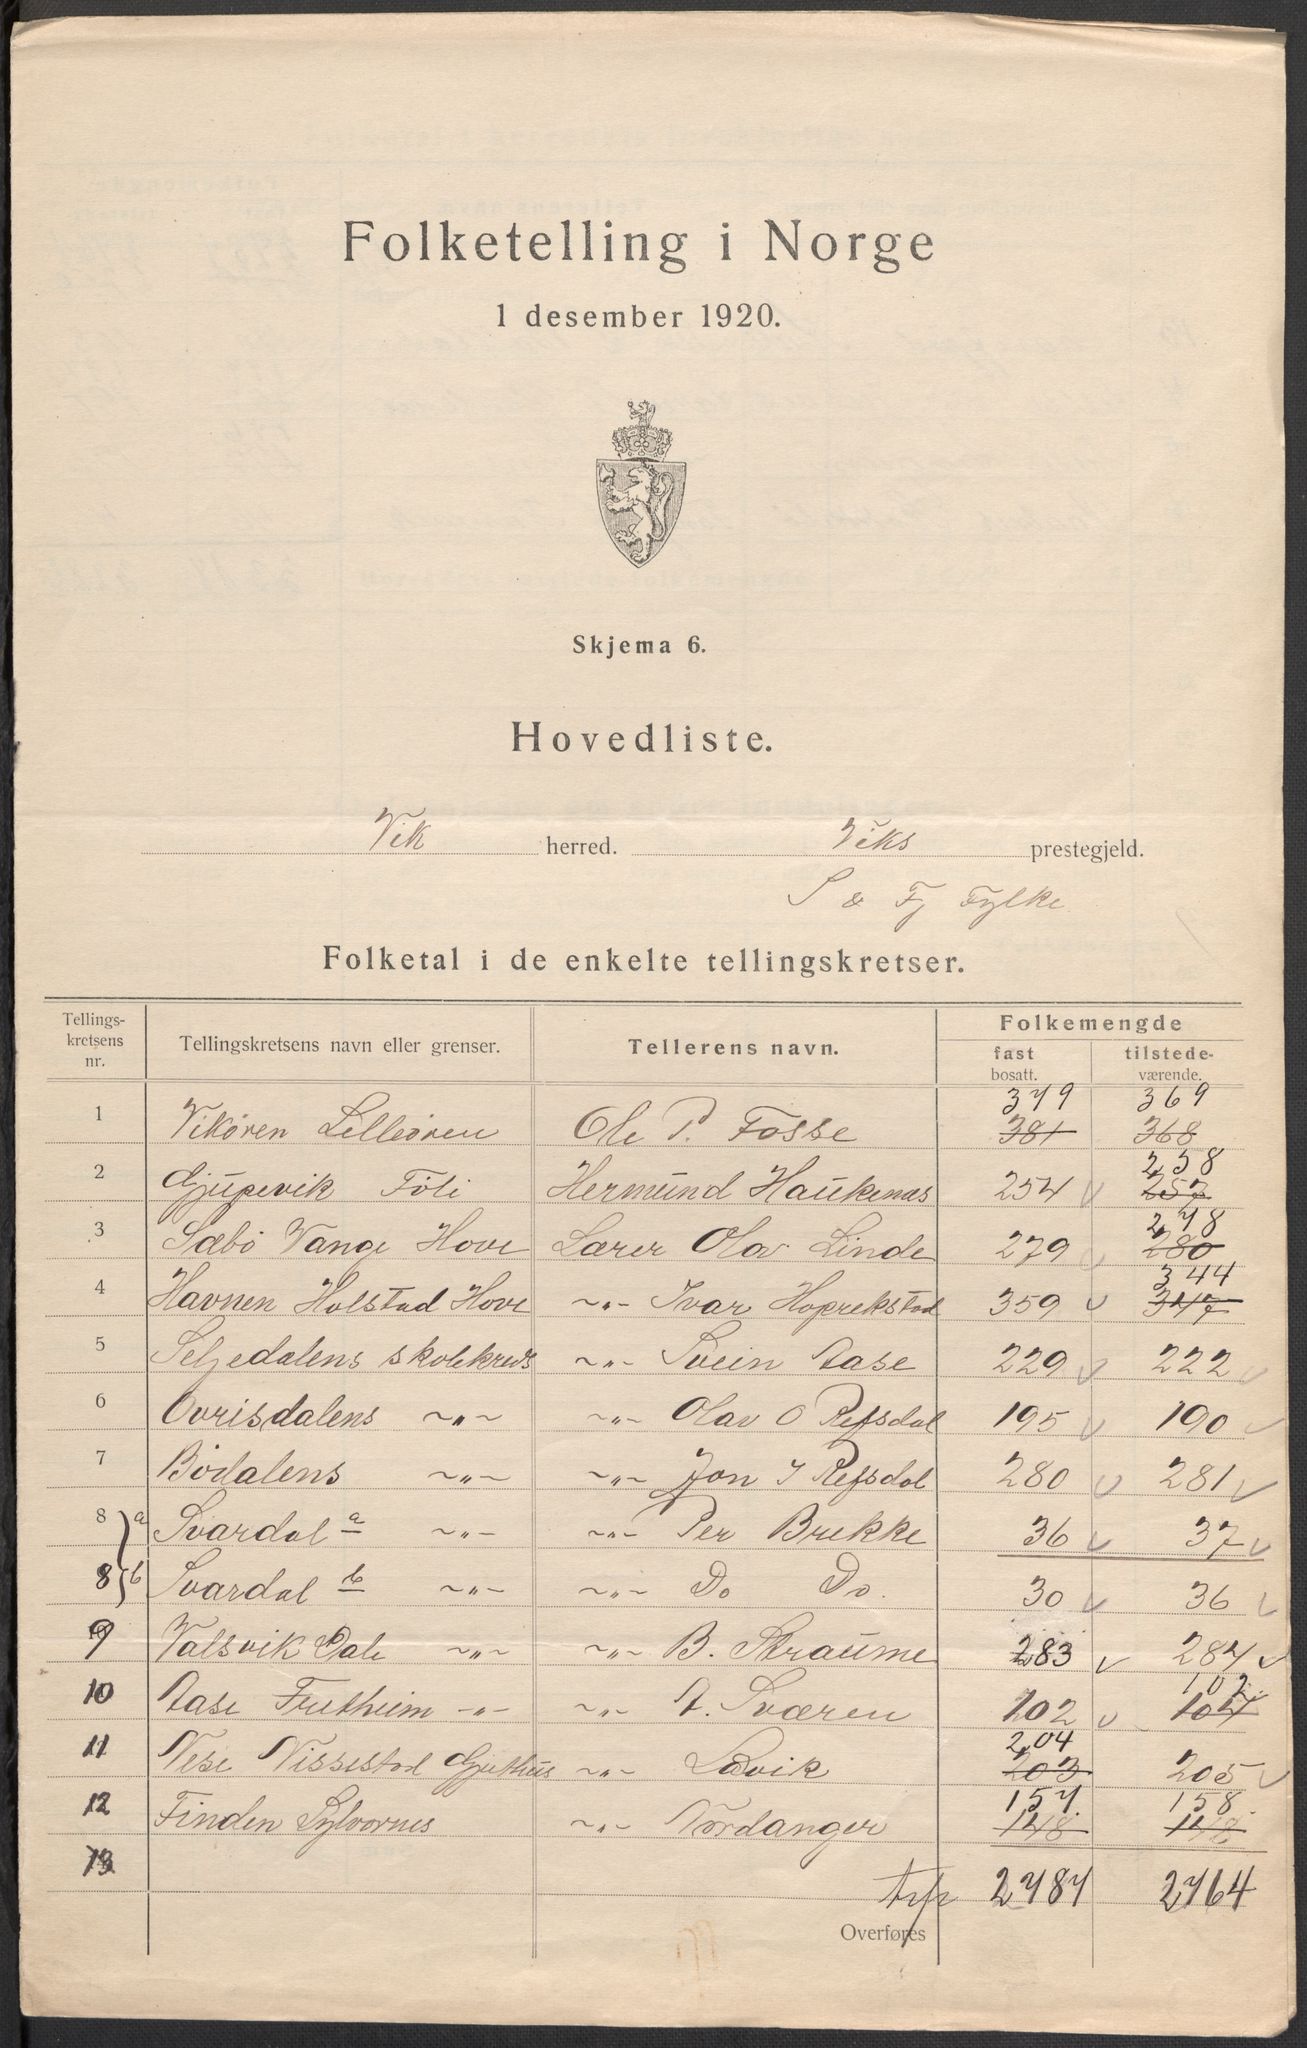 Folketelling i Norge
1 desember 1920.
Skjema 6.
Hovedliste.
Vik herred. Viks prestegjeld.
S & Fj Fylke
Folketal i de enkelte tellingskretser.
Tellings-kretsens nr. Tellingskretsens navn eller grenser. Tellerens navn. Folkemengde
fast bosatt. tilstede-værende.
379 369
1 Vikøren Lilleøren Ole P. Fosse 381 368
258
2 Djupevik Føli Hermund Haukenæs 254 257
278
3 Sæbø Vange Hove Lærer Olav Linde 279 280
344
4 Havnen Holstad Hove -"- Ivar Hoprekstad 359 347
5 Seljedalens skolekreds -"- Svein Aase 229 222
6 Ovrisdalens -"- -"- Olav O Refsdal 195 190
7 Bødalens -"- -"- Jon I Refsdal 280 281
8 a Svardal a -"- -"- Per Brekke 36 37
8 b Svardal b -"- -"- Do Do. 30 36
9 Valsvik Dale -"- -"- B. Straume 283 284
102
10 Aase Fretheim -"- -"- A. Sværen 102 104
204
11 Nese Nissestad Djuthus -"- Løvik 203 205
157 158
12 Finden Sylvarnes -"- Nordanger 148 148
13
2787 2764
Overføres